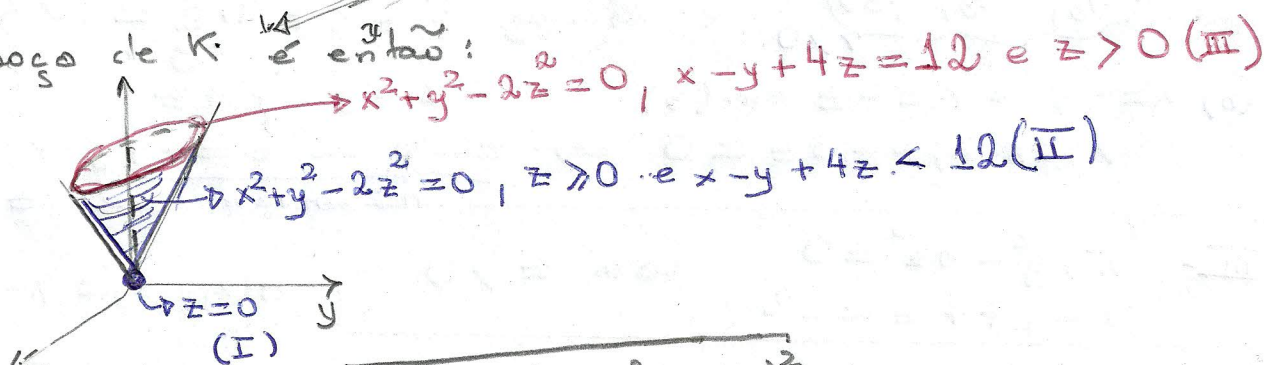 de K é então:
x²+y²-2z²=0, x-y+4z=12 e z>0 (III)
x²+y²-2z²=0, z≥0 e x-y+4z<12 (II)
z=0
y
(I)